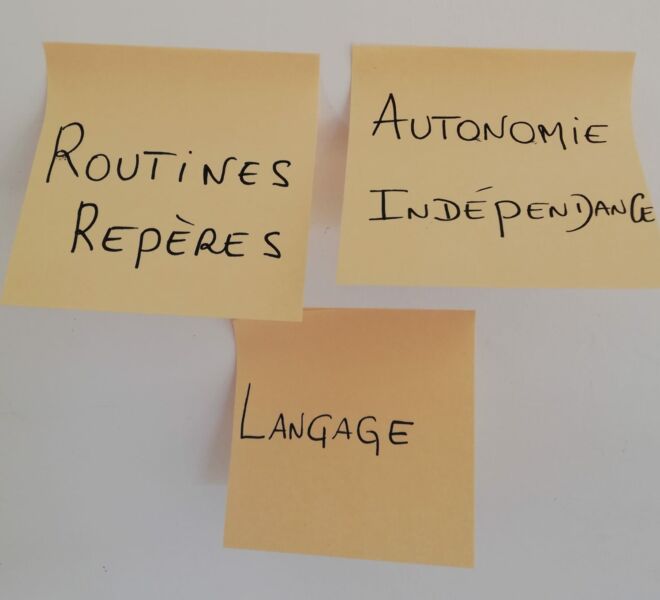 ROUTINES
REPÈRES
AUTONOMIE
INDÉPENDANCE
LANGAGE